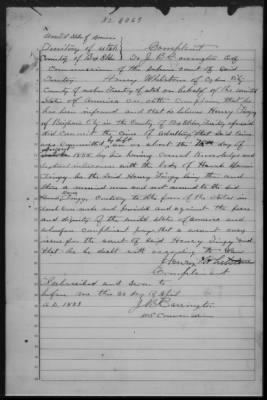 United States of America
Territory of Utah } Complaint
County of Box Elder } To J. B. Carrington a U.S
Commissioner of the
Territory Henry Whetstone of Ogden City
County of Weber Territory of Utah on behalf of the United
States of America on oath complains that he
has been informed and that he believes Henry Tingey
of Brigham City in the County of Box Elder Territory aforesaid
did commit the crime of adultery that said crime
was committed on or about the day of
August 1885 by his having carnal knowledge and
intercourse with the body of Hannah
Tingey he the said Henry Tingey being then and
there a married man and not married to the said
Hannah Tingey contrary to the form of the statute in
such case made and provided and against the peace
and dignity of the United States of America and
wherefore complainant prays that a warrant may
issue for the arrest of said Henry Tingey and
that he be dealt with according to law
Henry Whetstone
Complainant
Subscribed and sworn to
before me this 20 day of April
A.D. 1888
J B Carrington
US Commissioner